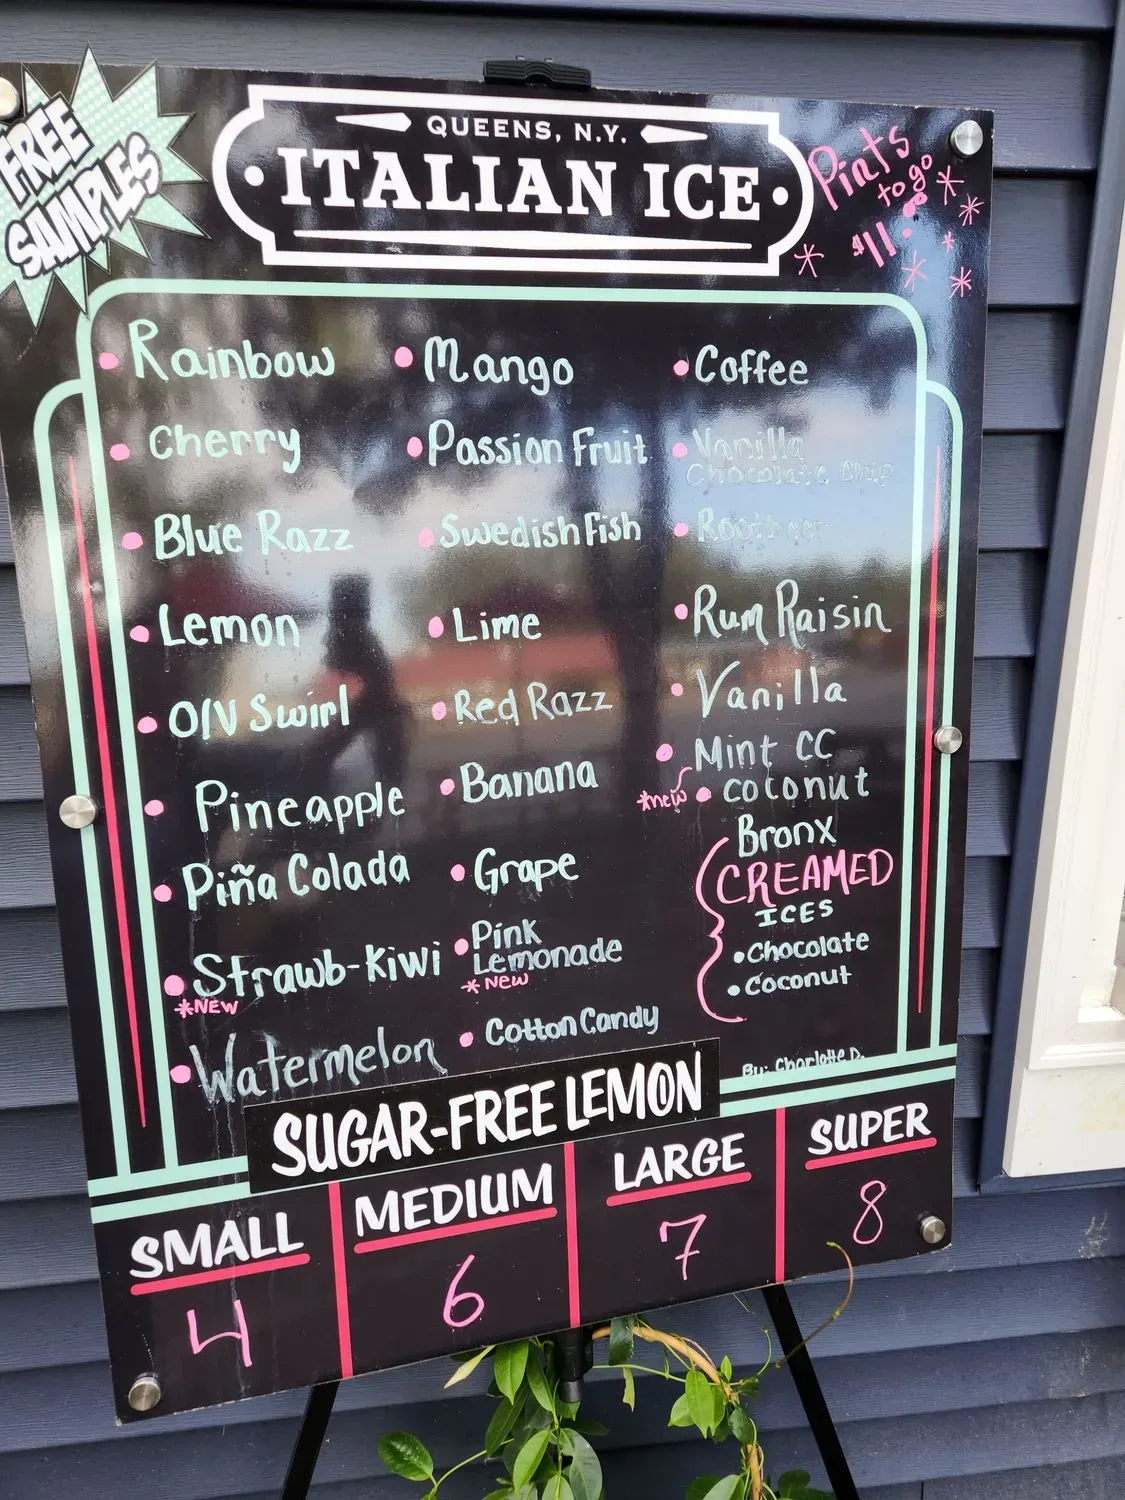 FREE
SAMPLES
QUEENS, N.Y.
ITALIAN ICE
Pints
to go
$11.00
Rainbow
Cherry
Blue Razz
Lemon
O/V Swirl
Pineapple
Piña Colada
Strawb-Kiwi
*NEW
Watermelon
Mango
Passion Fruit
Swedish Fish
Lime
Red Razz
Banana
Grape
Pink
Lemonade
*New
Cotton Candy
Coffee
Vanilla
Chocolate Chip
Rootbeer
Rum Raisin
Vanilla
Mint CC
*new coconut
Bronx
CREAMED
ICES
Chocolate
Coconut
By: Charlotte D.
SUGAR-FREE LEMON
SMALL
4
MEDIUM
6
LARGE
7
SUPER
8